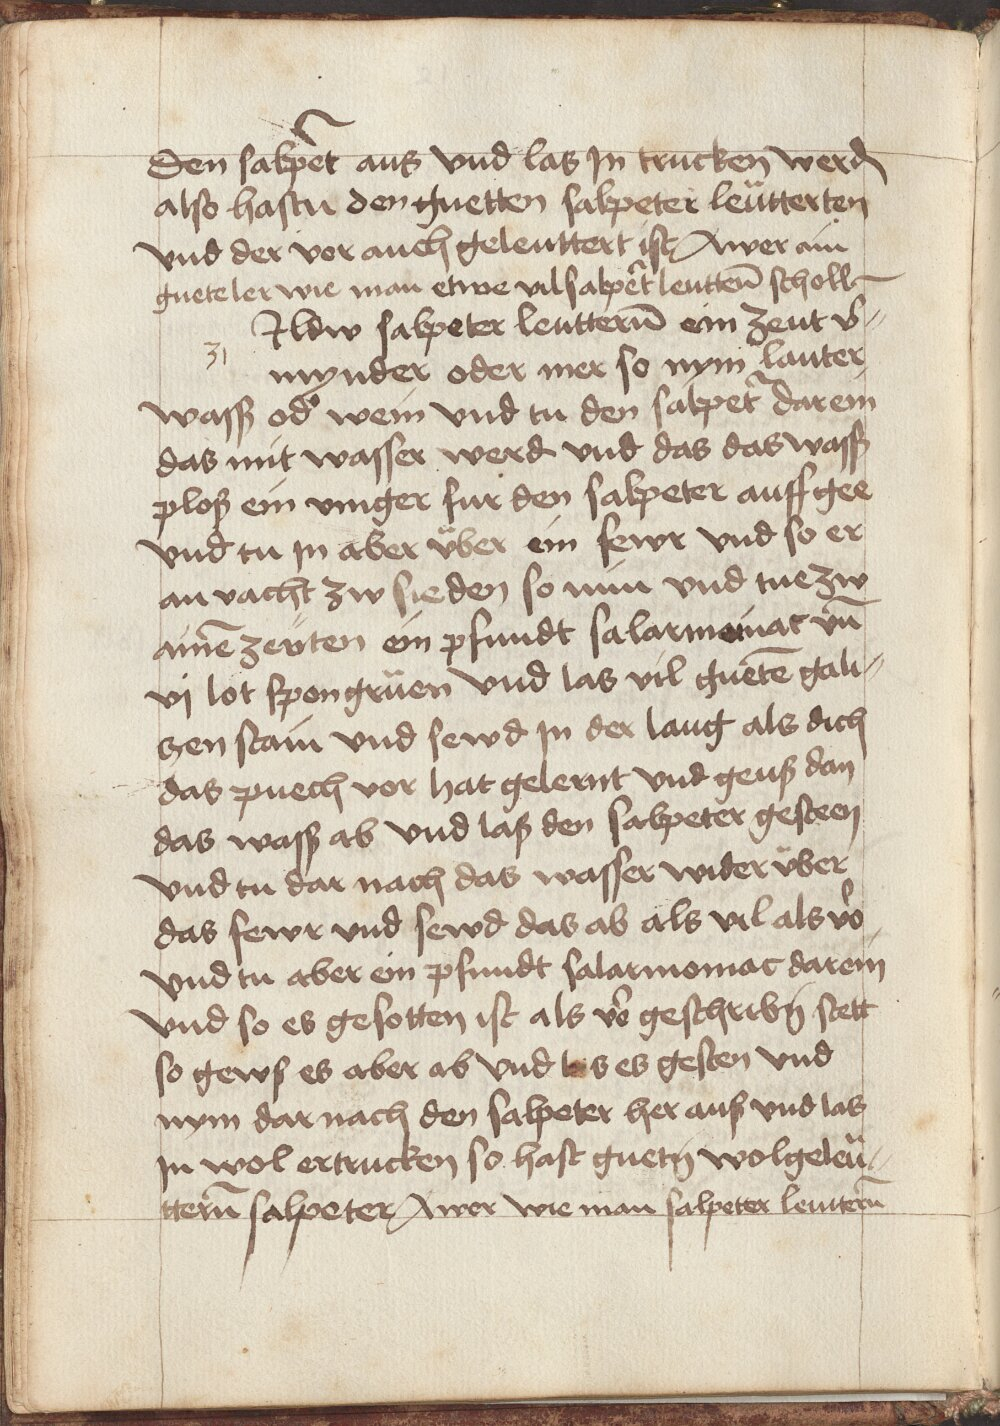 den salpet̃ aus vnd las jn trucken werdn̄
also hastu den guetten salpeter leütterten
vnd der vor auch geleuttert ist Awer ain
guete ler wie man etwe vil salpet̃ leuttern̄ scholl
Wildw salpeter leuttern̄ ein zent v̄=
31
mynder oder mer so nym lauter
wasß od̕ wein vnd tu den salpet̃ darein
das mit wasser werd vnd das das wasß
ploß ein vinger fur den salpeter auff gee
vnd tu jn aber v̈ber ein fewr vnd so er
an vacht zw sieden so nim vnd tue zw
aine͂ zenten ein pfundt salarmoniac vn̄
vj lot spongrüen vnd las vil guete͂ gali=
czen stain vnd sewd jn der laug als dich
das puech vor hat gelernt vnd geuß dan
das wasß ab vnd laß den salpeter gesteen
vnd tu dar nach das wasser wider v̈ber
das fewr vnd sewd das ab als vil als vo̕
vnd tu aber ein pfundt salarmoniac darein
vnd so es gesotten ist als vo̕ geschribn̄ stett
so gewß es aber ab vnd las es gesten vnd
nym dar nach den salpeter her auß vnd las
jn wol ertrucken so hast guetn̄ wolgeleü=
ttern̄ salpeter Awer wie man salpeter leuttern̄